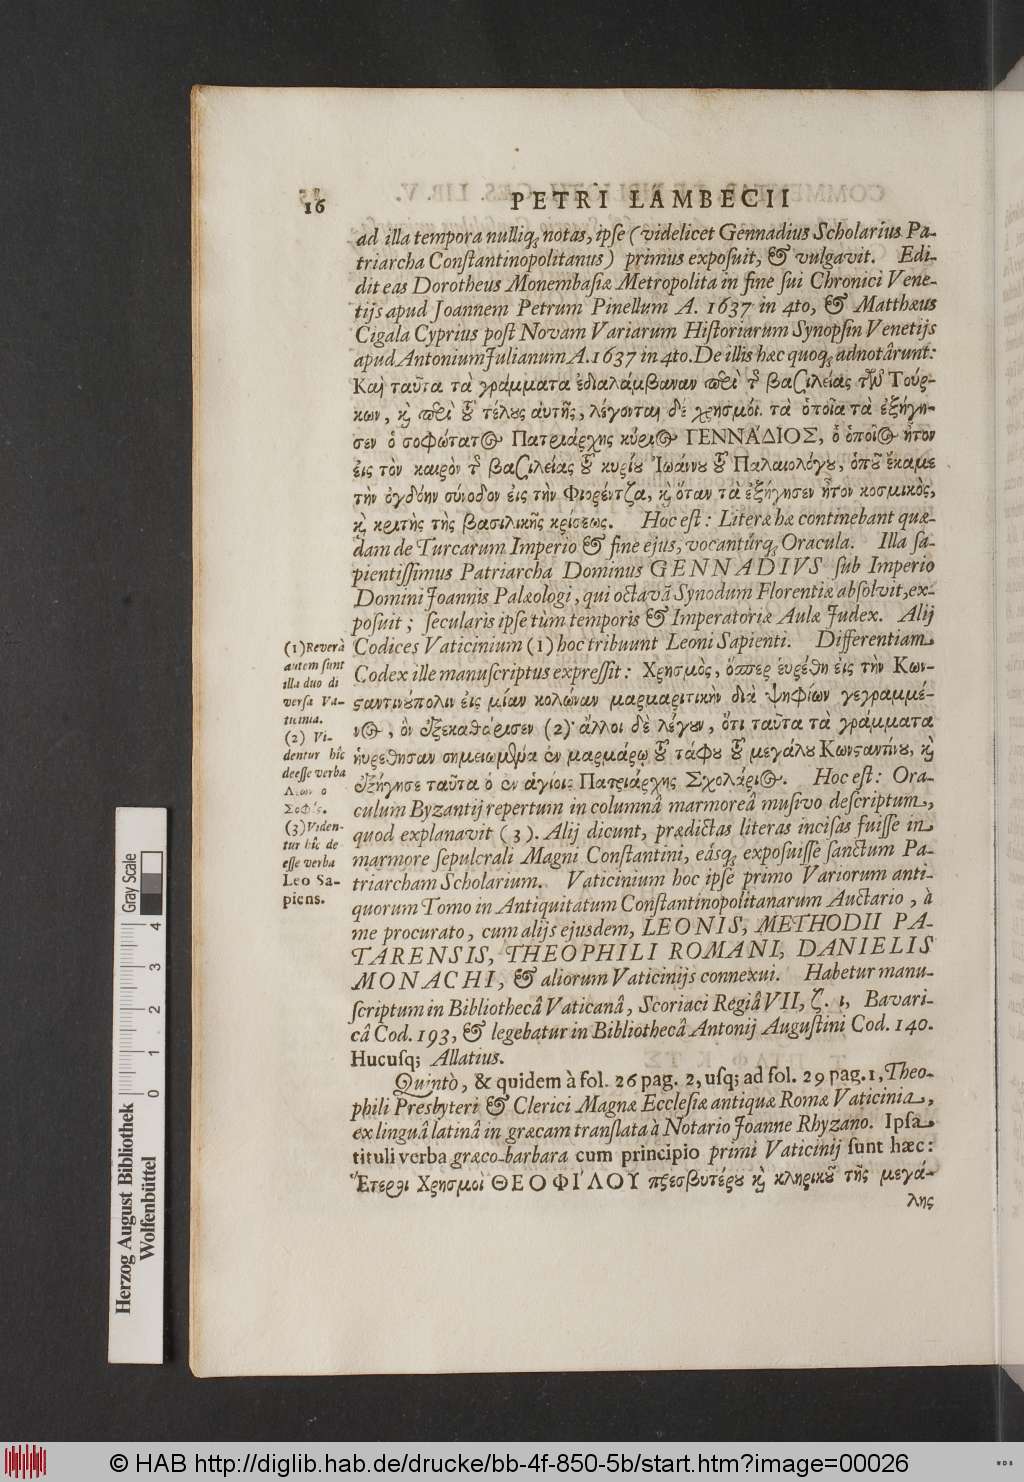 16 PETRI LAMBECII
ad illa tempora nulliq; notas, ipſe (videlicet Gennadius Scholarius Pa-
triarcha Conſtantinopolitanus) primus expoſuit, & vulgavit. Edi-
dit eas Dorotheus Monembaſiæ Metropolita in fine ſui Chronici Vene-
tijs apud Joannem Petrum Pinellum A. 1637 in 4to, & Matthæus
Cigala Cyprius poſt Novam Variarum Hiſtoriarum Synopſin Venetijs
apud Antonium Julianum A. 1637 in 4to. De illis hæc quoq; adnotârunt:
Καὶ ταῦτα τὰ γράμματα ἐδιαλάμβαναν περὶ τ͂ βασιλείας τῶν Τούρ-
κων, κὶ περὶ τȣ͂ τέλȣς ἀυτῆς, λέγονται δὲ χρησμόι. τὰ ὁποῖα τὰ ἐξήγη-
σεν ὁ σοφώτατος Πατριάρχης κύριος ΓΕΝΝΑΔΙΟΣ, ὁ ὁποῖος ἦτον
ἐις τὸν καιρὸν τ͂ βασιλείας τȣ͂ κυρίȣ Ἰωάννȣ τȣ͂ Παλαιολόγȣ, ὁπȣ͂ ἔκαμε
τὴν ὀγδόην σύνοδον ἐις τὴν Φιορέντζα, κὶ ὅταν τὰ ἐξήγησεν ἦτον κοσμικὸς,
κὶ κριτὴς τὴς βασιλικῆς κρίσεως. Hoc eſt: Literæ hæ continebant quæ-
dam de Turcarum Imperio & fine ejus, vocantúrq; Oracula. Illa ſa-
pientiſſimus Patriarcha Dominus GENNADIVS ſub Imperio
Domini Joannis Palæologi, qui octavã Synodum Florentiæ abſolvit, ex-
poſuit; ſecularis ipſe tùm temporis & Imperatoriæ Aulæ Judex. Alij
Codices Vaticinium (1) hoc tribuunt Leoni Sapienti. Differentiam
Codex ille manuſcriptus expreſſit: Χρησμὸς, ὅπερ ἑυρέθη ἐις τὴν Κων-
ςαντινȣ́πολιν ἐις μίαν κολώναν μαρμαριτικὴν διὰ ψηφίων γεγραμμέ-
νος, ὃν ἐξεκαθάρισεν (2) ἄλλοι δὲ λέγȣν, ὅτι ταῦτα τὰ γράμματα
ἡυρεθησαν σημειωμένα ἐν μαρμάρῳ τȣ͂ τάφȣ τȣ͂ μεγάλȣ Κωνςαντίνȣ, κὶ
ἐξήγησε ταῦτα ὁ ἐν ἁγίοις Πατριάρχης Σχολάριος. Hoc eſt: Ora-
culum Byzantij repertum in columnâ marmoreâ muſivo deſcriptum,
quod explanavit (3). Alij dicunt, prædictas literas inciſas fuiſſe in
marmore ſepulcrali Magni Conſtantini, eáſq; expoſuiſſe ſanctum Pa-
triarcham Scholarium. Vaticinium hoc ipſe primo Variorum anti-
quorum Tomo in Antiquitatum Conſtantinopolitanarum Auctario, à
me procurato, cum alijs ejuſdem, LEONIS, METHODII PA-
TARENSIS, THEOPHILI ROMANI, DANIELIS
MONACHI, & aliorum Vaticinijs connexui. Habetur manu-
ſcriptum in Bibliothecâ Vaticanâ, Scoriaci Regiâ VII, ζ. 1, Bavari-
câ Cod. 193, & legebatur in Bibliothecâ Antonij Auguſtini Cod. 140.
Hucuſq; Allatius.
Quintò, & quidem à fol. 26 pag. 2, uſq; ad fol. 29 pag. 1, Theo-
phili Presbyteri & Clerici Magnæ Eccleſiæ antiquæ Romæ Vaticinia,
ex linguâ latinâ in græcam tranſlata à Notario Joanne Rhyzano. Ipſa
tituli verba græco-barbara cum principio primi Vaticinij ſunt hæc:
Ἕτεροι Χρησμοὶ ΘΕΟΦΙΛΟΥ πρεσβυτέρȣ κὶ κληρικȣ͂ τῆς μεγά-
λης
(1) Reverà
autem ſunt
illa duo di
verſa Va-
ticinia.
(2) Vi-
dentur hîc
deeſſe verba
Λέων ὁ
Σοφὸς.
(3) Viden-
tur hîc de
eſſe verba
Leo Sa-
piens.
Herzog August Bibliothek
Wolfenbüttel
0 1 2 3 4
Gray Scale
© HAB http://diglib.hab.de/drucke/bb-4f-850-5b/start.htm?image=00026